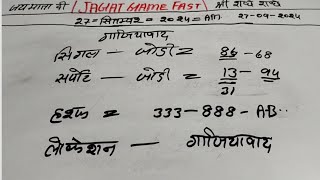 जय माता दी [JAGAT GAME FAST] श्री राधे राधे
27 = सितम्बर = 2024 = AM 27-09-2024
गाजियाबाद
सिंगल - जोडी = 86-68
सपोर्ट - जोडी = 13-94
31
हरफ = 333-888-AB..
लोकेशन - गाजियाबाद